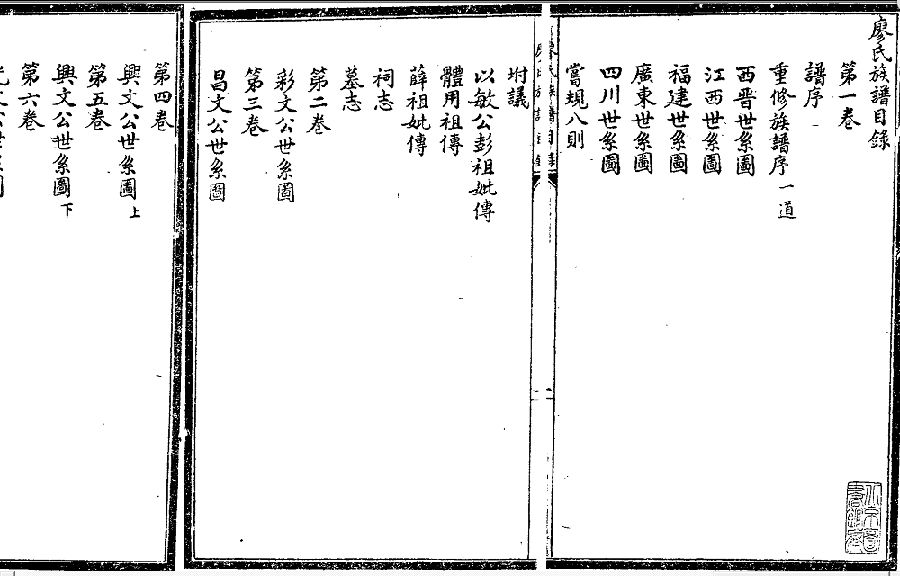 廖氏族譜目錄
第一卷
譜序
重修族譜序一道
西晋世系圖
江西世系圖
福建世系圖
廣東世系圖
四川世系圖
嘗規八則
坿議
以敏公彭祖妣傳
體用祖傳
薛祖妣傳
祠志
墓志
第二卷
彩文公世系圖
第三卷
昌文公世系圖
第四卷
興文公世系圖上
第五卷
興文公世系圖下
第六卷